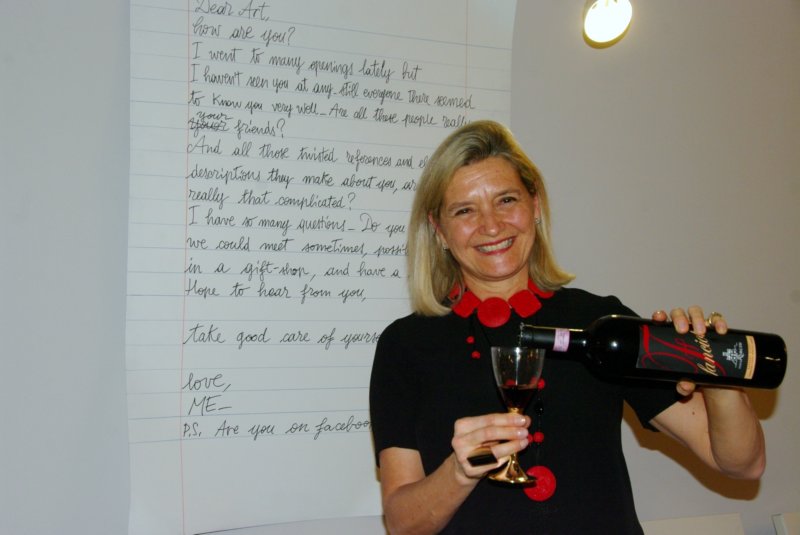 Dear Art,
how are you?
I went to many openings lately but
I haven't seen you at any_ still everyone there seemed
to know you very well_ Are all these people really
your
friends?
And all those twisted references and
descriptions they make about you,
really that complicated?
I have so many questions_ Do you
we could meet sometimes,
in a gift-shop, and have a
Hope to hear from you,
take good care of
love,
ME_
P.S. Are you on